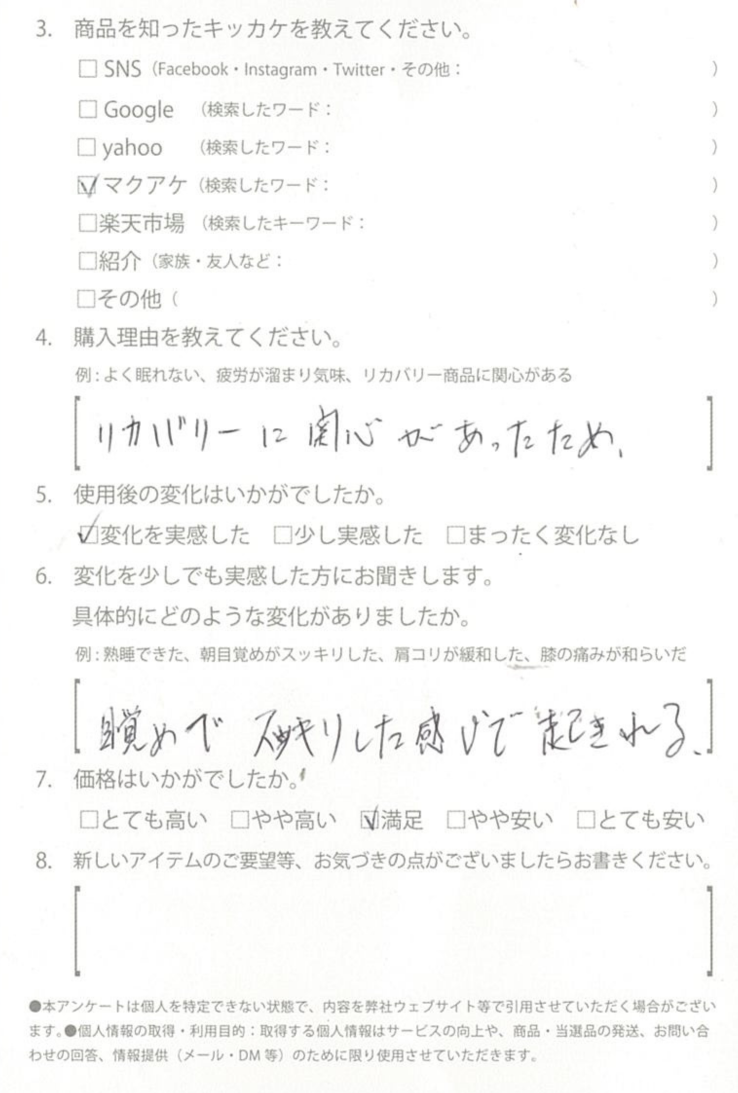 3. 商品を知ったキッカケを教えてください。
□ SNS（Facebook・Instagram・Twitter・その他： ）
□ Google （検索したワード： ）
□ yahoo （検索したワード： ）
☑ マクアケ（検索したワード： ）
□楽天市場 （検索したキーワード： ）
□紹介（家族・友人など： ）
□その他（ ）
4. 購入理由を教えてください。
例：よく眠れない、疲労が溜まり気味、リカバリー商品に関心がある
リカバリーに関心があったため、
5. 使用後の変化はいかがでしたか。
☑変化を実感した □少し実感した □まったく変化なし
6. 変化を少しでも実感した方にお聞きします。
具体的にどのような変化がありましたか。
例：熟睡できた、朝目覚めがスッキリした、肩コリが緩和した、膝の痛みが和らいだ
目覚めで スッキリした感じで起きれる、
7. 価格はいかがでしたか。
□とても高い □やや高い ☑満足 □やや安い □とても安い
8. 新しいアイテムのご要望等、お気づきの点がございましたらお書きください。
●本アンケートは個人を特定できない状態で、内容を弊社ウェブサイト等で引用させていただく場合がござい
ます。●個人情報の取得・利用目的：取得する個人情報はサービスの向上や、商品・当選品の発送、お問い合
わせの回答、情報提供（メール・DM 等）のために限り使用させていただきます。